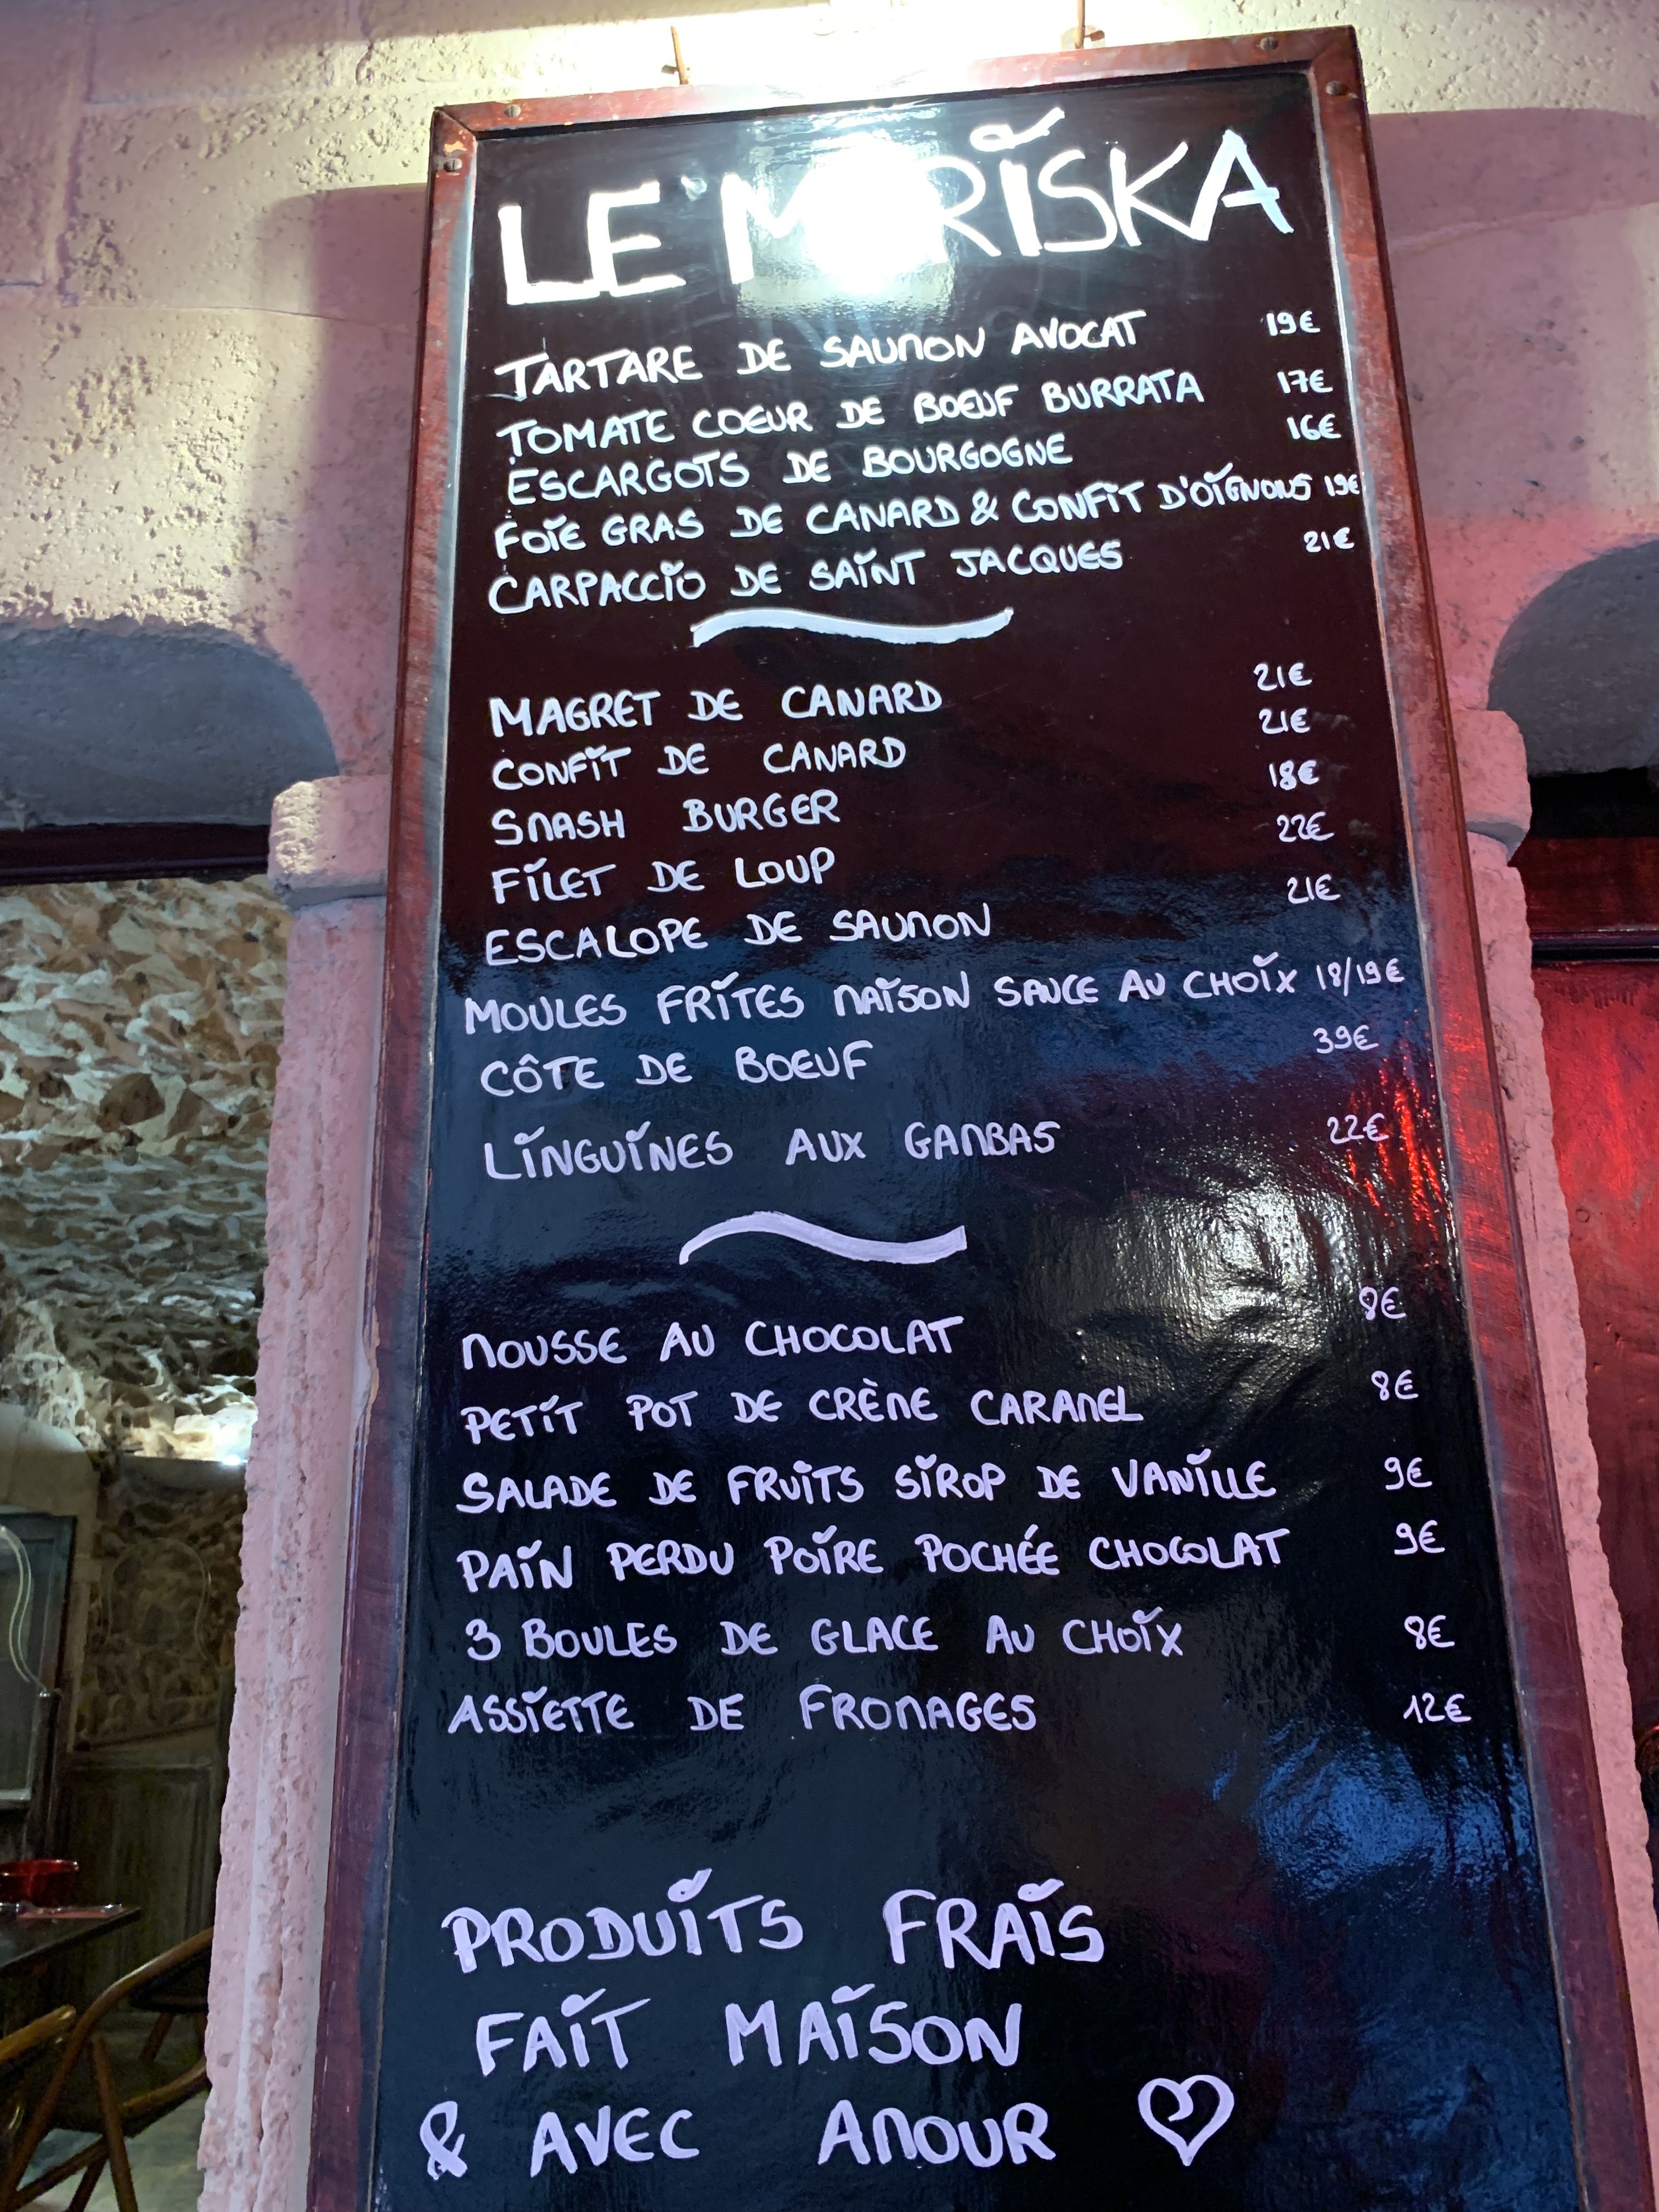 LE
TARTARE DE SAUMON AVOCAT 19€
TOMATE COEUR DE BOEUF BURRATA 17€
ESCARGOTS DE BOURGOGNE 16€
FOIE GRAS DE CANARD & CONFIT D'OIGNONS 19€
CARPACCIO DE SAINT JACQUES 21€
MAGRET DE CANARD 21€
CONFIT DE CANARD 21€
SMASH BURGER 18€
FILET DE LOUP 22€
ESCALOPE DE SAUMON 21€
MOULES FRITES MAISON SAUCE AU CHOIX 18/19€
CÔTE DE BOEUF 39€
LINGUINES AUX GAMBAS 22€
MOUSSE AU CHOCOLAT 8€
PETIT POT DE CRÈME CARAMEL 8€
SALADE DE FRUITS SIROP DE VANILLE 9€
PAIN PERDU POIRE POCHÉE CHOCOLAT 9€
3 BOULES DE GLACE AU CHOIX 8€
ASSIETTE DE FROMAGES 12€
PRODUITS FRAIS
FAIT MAISON
& AVEC AMOUR